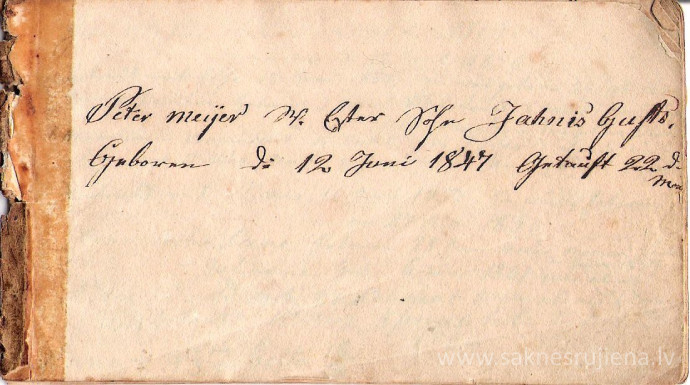 Peter Meijer W. Ester Sohn Jahnis Gusts.
Geboren d: 12 Juni 1847 Getauft 22 d.
Mon
www.saknesrujiena.lv